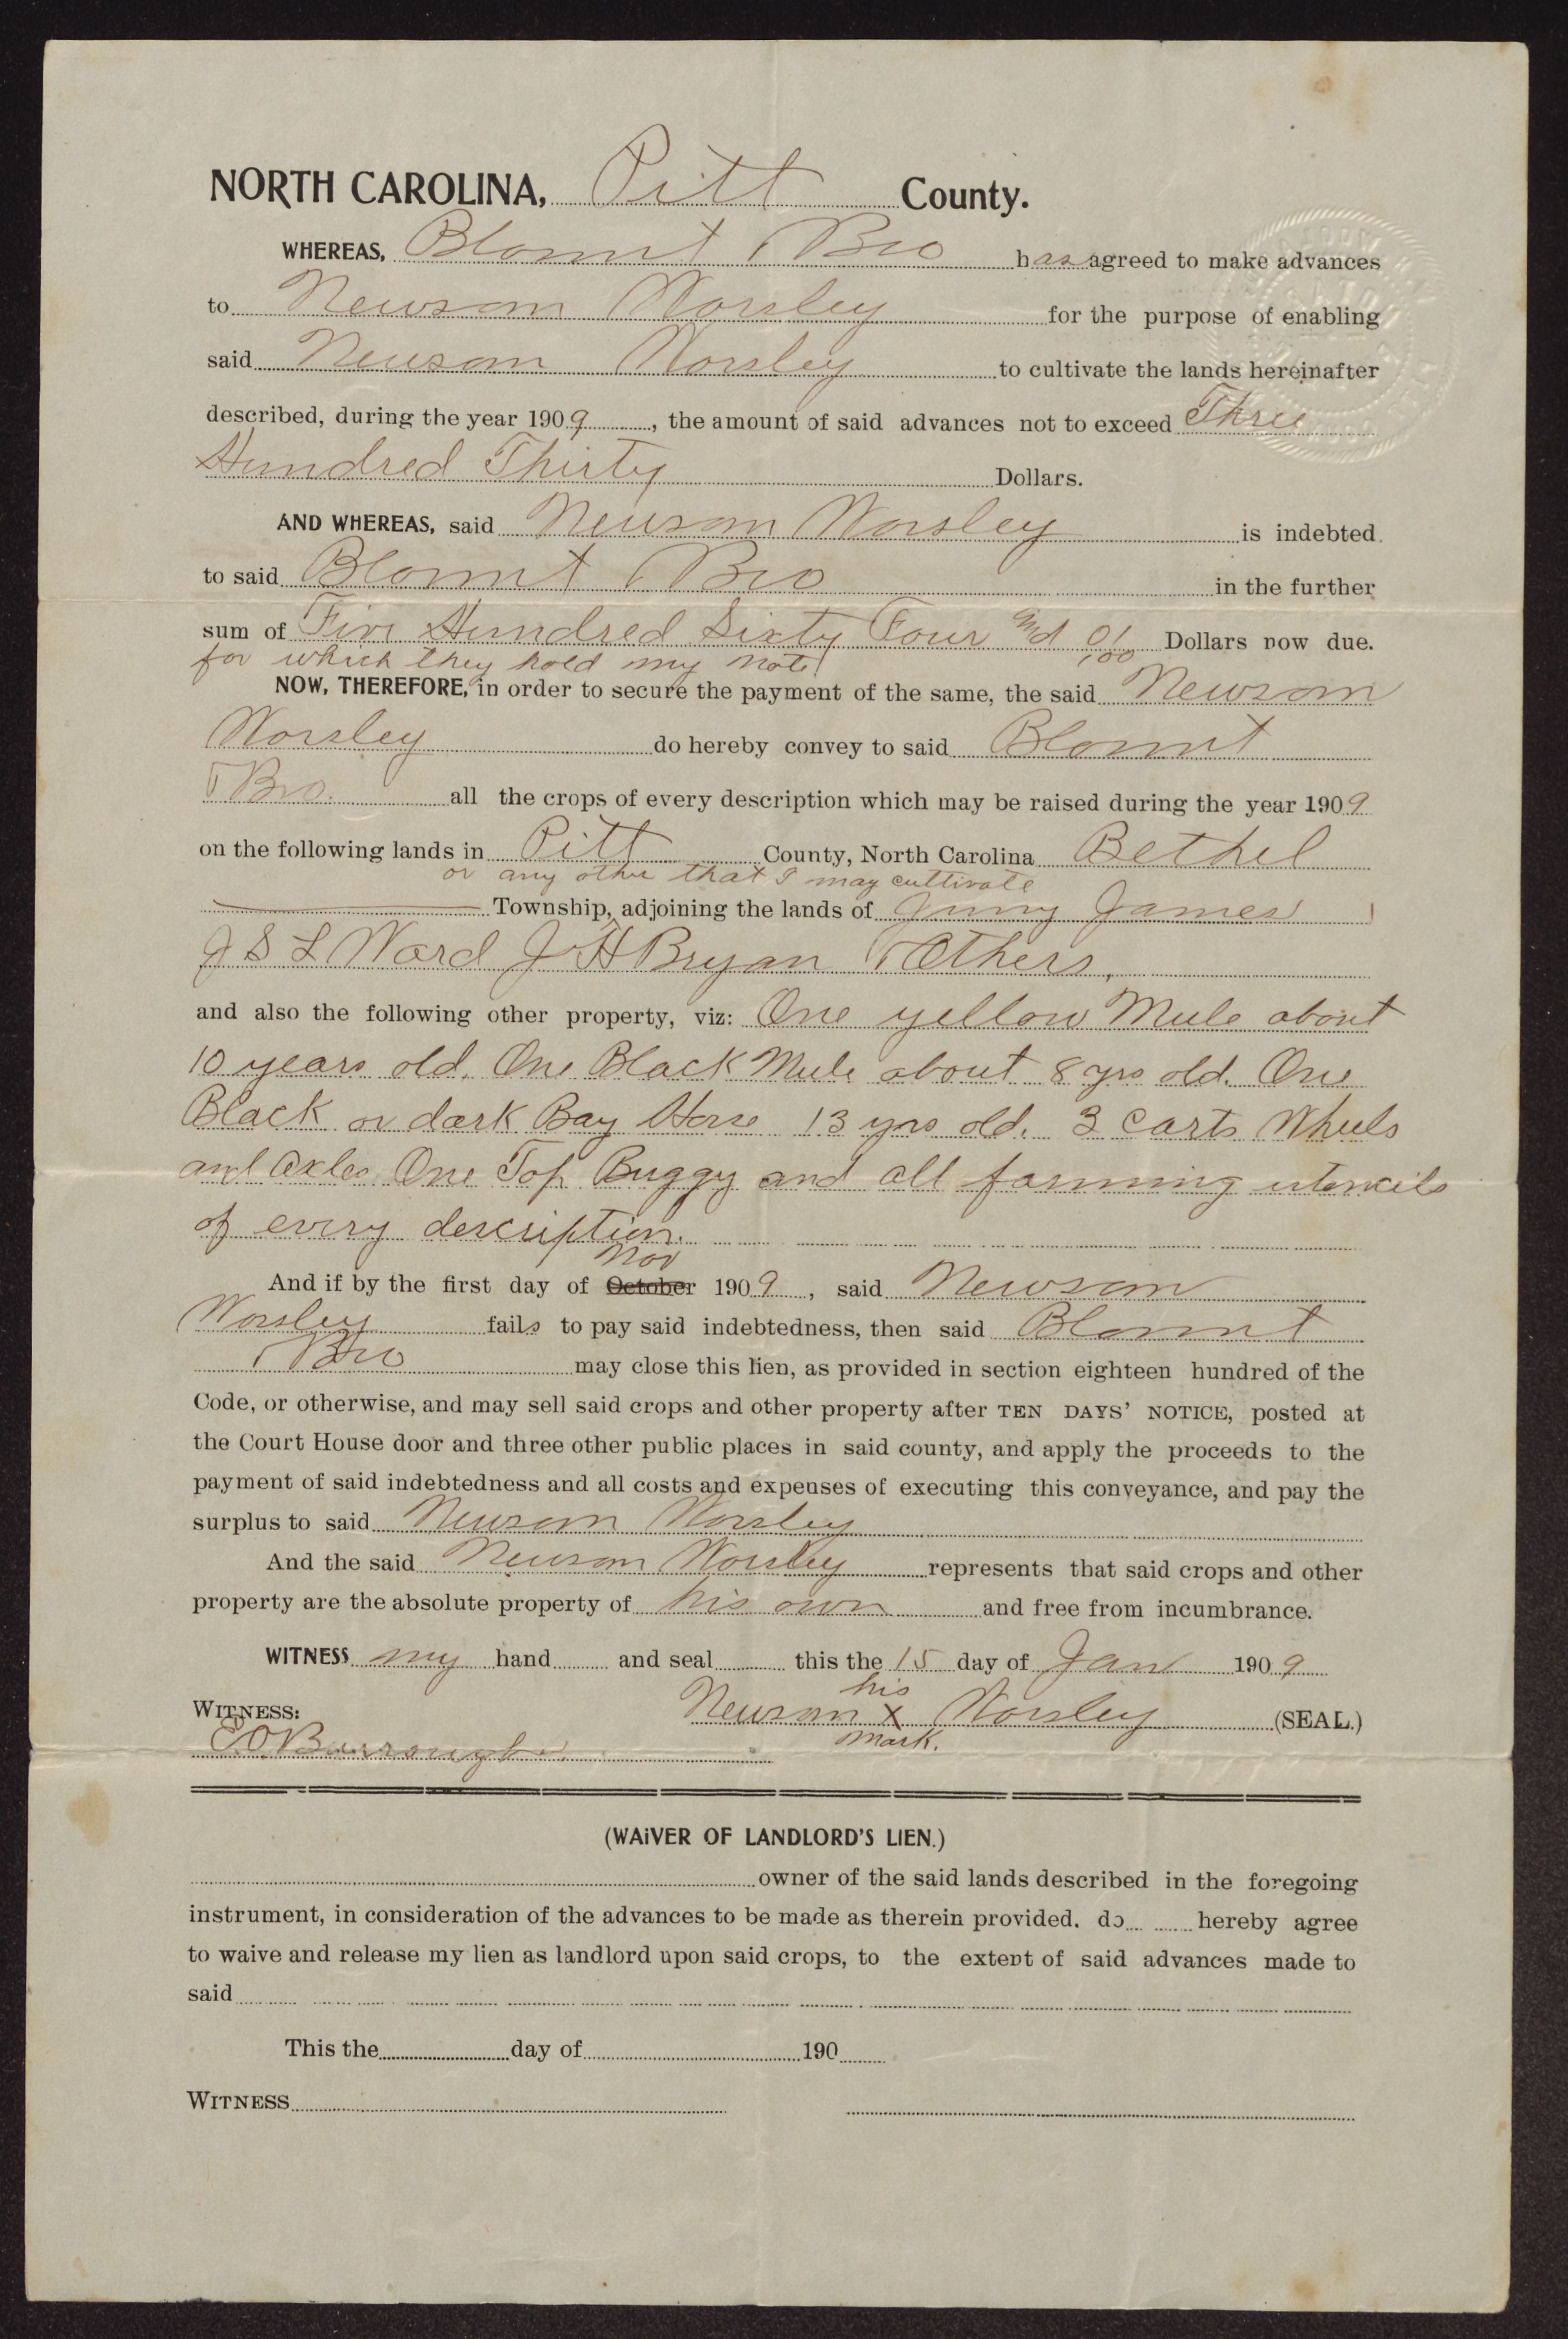 NORTH CAROLINA, Pitt County.
WHEREAS, Blount & Bro has agreed to make advances
to Newsom Worsley for the purpose of enabling
said Newsom Worsley to cultivate the lands hereinafter
described, during the year 1909, the amount of said advances not to exceed Three
Hundred Thirty Dollars.
AND WHEREAS, said Newsom Worsley is indebted
to said Blount & Bro in the further
sum of Five Hundred Sixty Four and 01/100 Dollars now due.
for which they hold my note
NOW, THEREFORE, in order to secure the payment of the same, the said Newsom
Worsley do hereby convey to said Blount
& Bro. all the crops of every description which may be raised during the year 1909
on the following lands in Pitt County, North Carolina Bethel
or any other that I may cultivate
Township, adjoining the lands of James
J S L Ward J H Bryan & Others,
and also the following other property, viz: One yellow Mule about
10 years old. One Black Mule about 8 yrs old. One
Black or dark Bay Horse 13 yrs old. 3 Carts Wheels
and Axles. One Top Buggy and all farming utensils
of every description.
Nov
And if by the first day of October 1909, said Newsom
Worsley fails to pay said indebtedness, then said Blount
& Bro may close this lien, as provided in section eighteen hundred of the
Code, or otherwise, and may sell said crops and other property after TEN DAYS' NOTICE, posted at
the Court House door and three other public places in said county, and apply the proceeds to the
payment of said indebtedness and all costs and expenses of executing this conveyance, and pay the
surplus to said Newsom Worsley
And the said Newsom Worsley represents that said crops and other
property are the absolute property of his own and free from incumbrance.
WITNESS my hand and seal this the 15 day of Jan 1909
his
WITNESS: Newsom X Worsley (SEAL.)
mark.
E.O. Burroughs
(WAIVER OF LANDLORD'S LIEN.)
owner of the said lands described in the foregoing
instrument, in consideration of the advances to be made as therein provided. do hereby agree
to waive and release my lien as landlord upon said crops, to the extent of said advances made to
said
This the day of 190
WITNESS